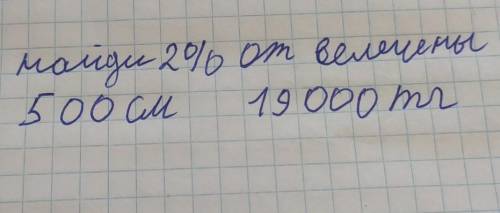 найди 2% от велечены
500 см 19 000 тг